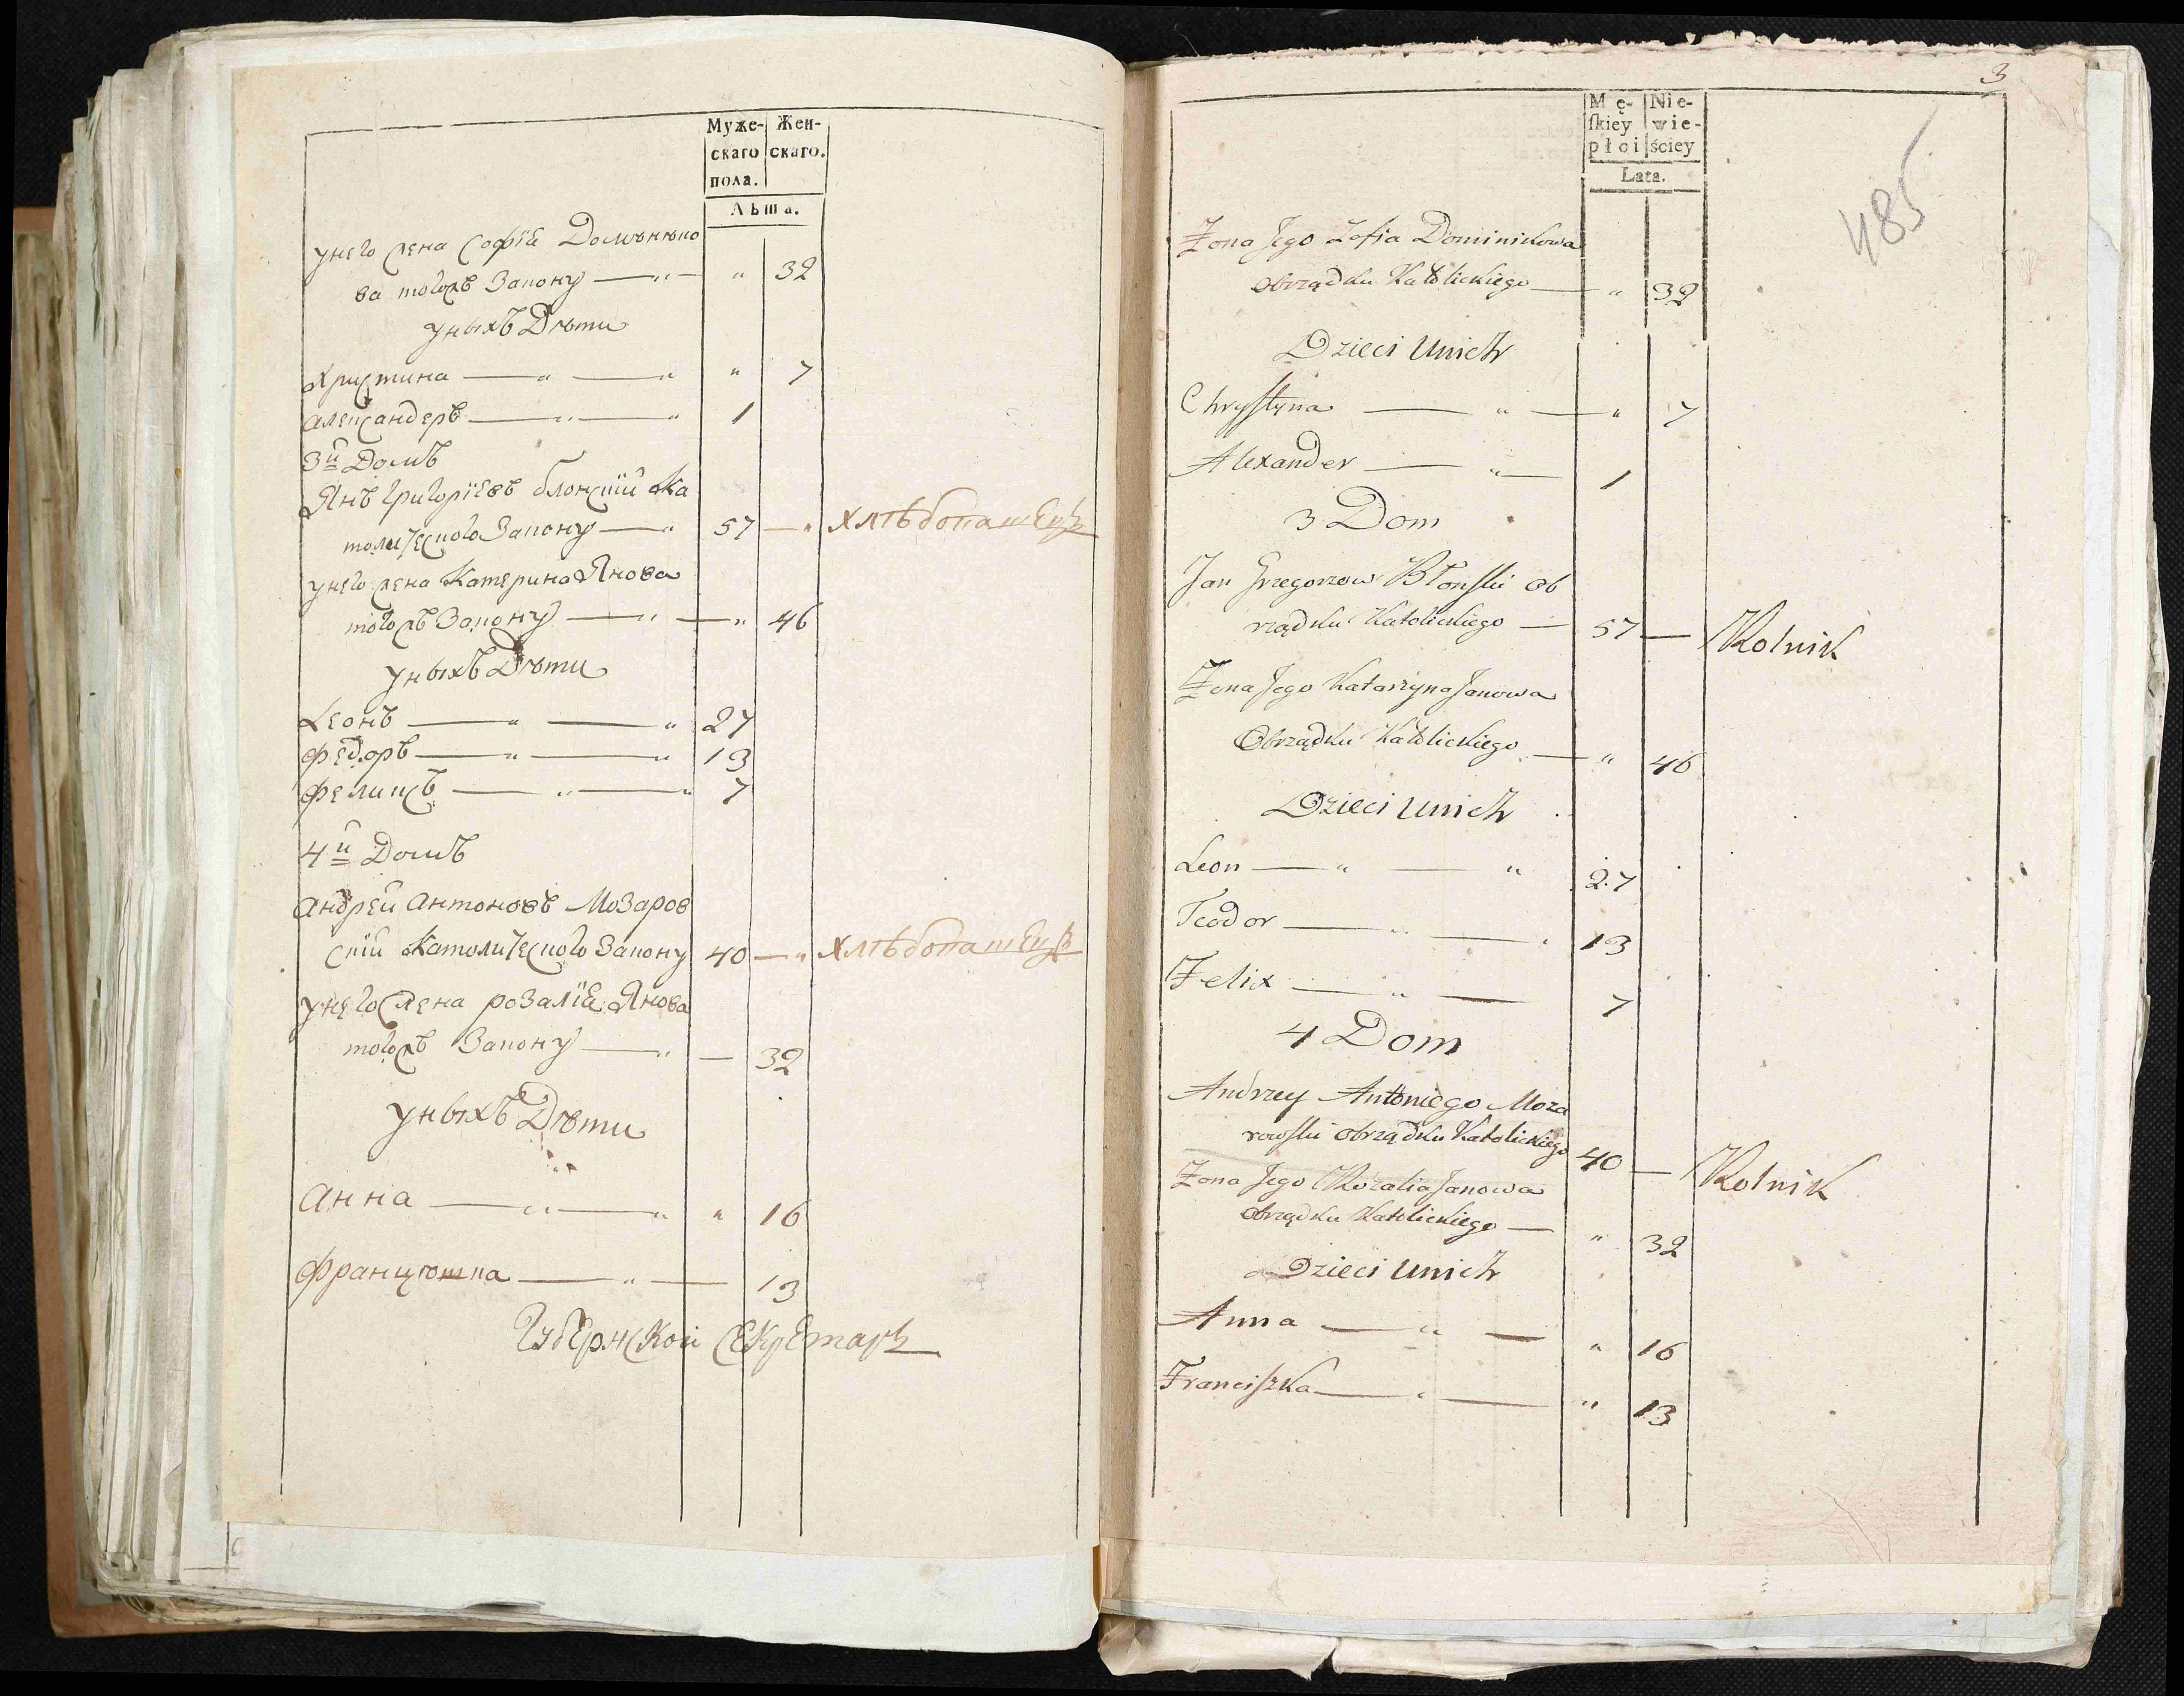 Муже- Жен-
скаго скаго.
пола.
Лѣта.
унего жена Софїя Доминико
ва тогожъ Закону — " — " 32
уныхъ Дѣти
Христина — " — " " 7
Александеръ — " — " 1
3й Домъ
Янъ Григорїевъ Блонскїй Ка
толического Закону — " 57 — " Хлѣбопашецъ
унего жена Катерина Янова
тогожъ Закону — " — " 46
уныхъ Дѣти
Леонъ — " — " 27
Федоръ — " — " 13
Феликсъ — " — " 7
4й Домъ
Андрей Антоновъ Мозаров
скїй Католического Закону 40 — " Хлѣбопашецъ
унего жена Розалїя Янова
тогожъ Закону — " — 32
уныхъ Дѣти
Анна — " — " " 16
Францишка — " — 13
Губернской Секретарь
3
485
Mę- Nie-
ſkiey wie-
płci ściey
Lata.
Żona Jego Zofia Dominikowa
Obrządku Katolickiego — " 32
Dzieci Unich
Chryſtyna — " — " 7
Alexander — " — 1
3 Dom
Jan Grzegorzow Błonſki Ob
rządku Katolickiego — 57 — Rolnik
Żona Jego Katarzyna Janowa
Obrządku Katolickiego — " 46
Dzieci Unich
Leon — " — " 27
Teodor — " — " 13
Felix — " — 7
4 Dom
Andrzey Antoniego Moza
rowſki Obrządku Katolickiego 40 — Rolnik
Żona Jego Rozalia Janowa
Obrządku Katolickiego — " 32
Dzieci Unich
Anna — " — " 16
Franciſzka — " — " 13